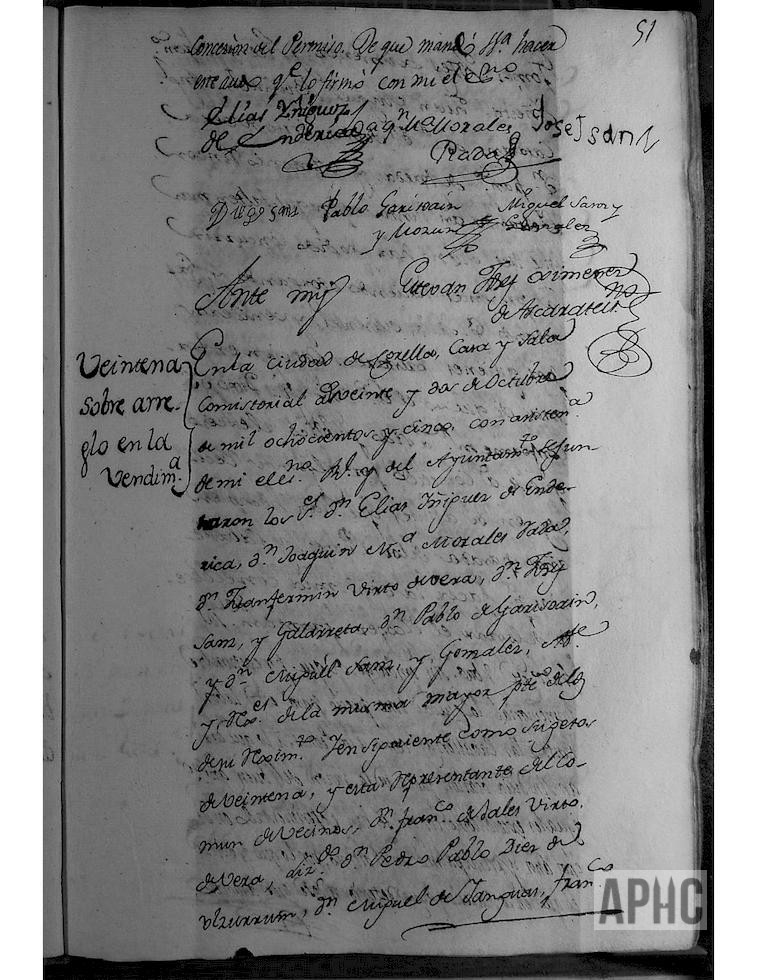 51
Concesion del Permiso. De que mandó Sª. hacer
este auto q.e lo firmó con mi el es.no
Elias Yñiguez
de Enderica
Joaq.n M.a Morales
Rada
Josef sanz
Diego sanz
Pablo Garisoain
y Morun
Miguel Sanz y
Gonzalez
Ante my
Estevan Josef Ximenez
de Ascarate
no
Veintena
sobre arre-
glo en la
Vendim.a
En la ciudad de Corella, Casa y Sala
Comistorial a veinte y dos de Octubre
de mil ochocientos y cinco, con asisten.a
de mi el es.no R.l y del Ayuntam.to se Jun-
taron los S.es D.n Elias Iñiguez de Ende-
rica, D.n Joaquin M.a Morales Rada,
D.n Juan fermin Virto de vera, D.n Josef
Sanz, y Galarreta, D.n Pablo de Garisoain,
y D.n Miguel Sanz, y Gonzalez, Al.e
y Rex.es de la misma mayor p.te de los
de su Rexim.to y en siguiente como sugetos
de veintena, y esta Representante del Co-
mun de Vecinos, D.n fran.co de Sales Virto
de Vera, D.n Pedro Pablo Diez de
Ulzurrun, D.n Miguel de Sanguas, fran.co
APHC